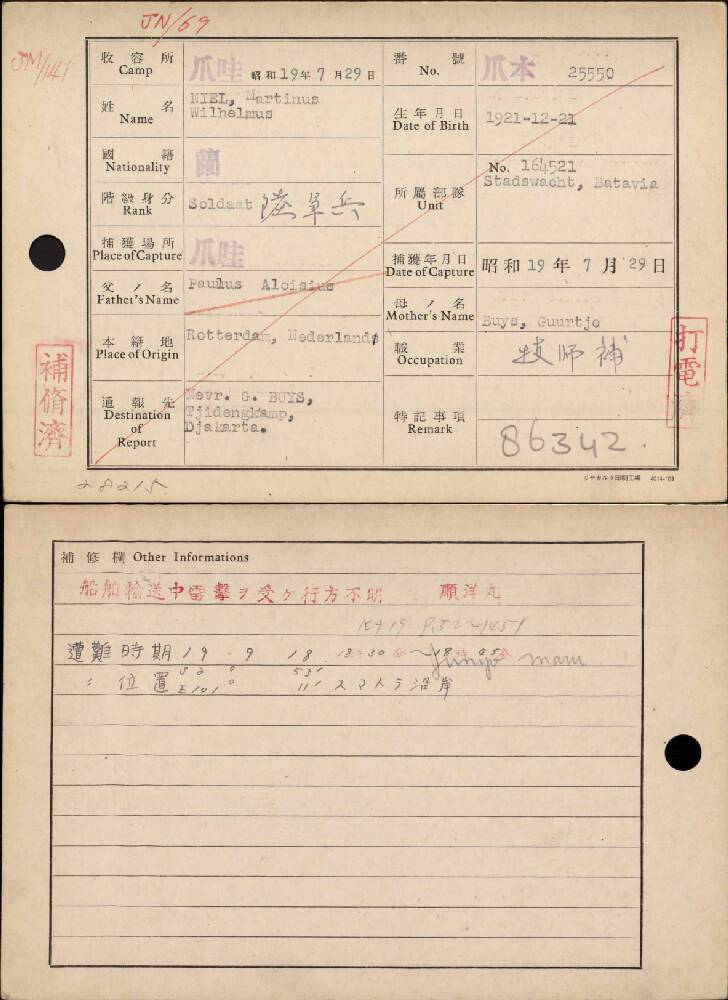 JN/69
JM/141
收容所 Camp 爪哇 昭和19年7月29日 番號 No. 爪本 25550
姓名 Name NIEL, Martinus Wilhelmus 生年月日 Date of Birth 1921-12-21
國籍 Nationality 蘭 所屬部隊 Unit No. 164521 Stadswacht, Batavia
階級身分 Rank Soldaat 陸軍兵
捕獲場所 Place of Capture 爪哇 捕獲年月日 Date of Capture 昭和19年7月29日
父ノ名 Father's Name Paulus Aloisius 母ノ名 Mother's Name Buys, Guurtje
本籍地 Place of Origin Rotterdam, Nederland 職業 Occupation 技師補
通報先 Destination of Report Mevr. G. BUYS, Tjidengkamp, Djakarta. 特記事項 Remark 86342.
補脩濟
打電濟
28215
ジヤカルタ印刷工場
補修欄 Other Informations
船舶輸送中雷擊ヲ受ケ行方不明 順洋丸
遭難時期 19 . 9 18 18時30分〜18時05分
Junyo maru
〃 位置 S 2° 53' E 101° 11' スマトラ沿岸